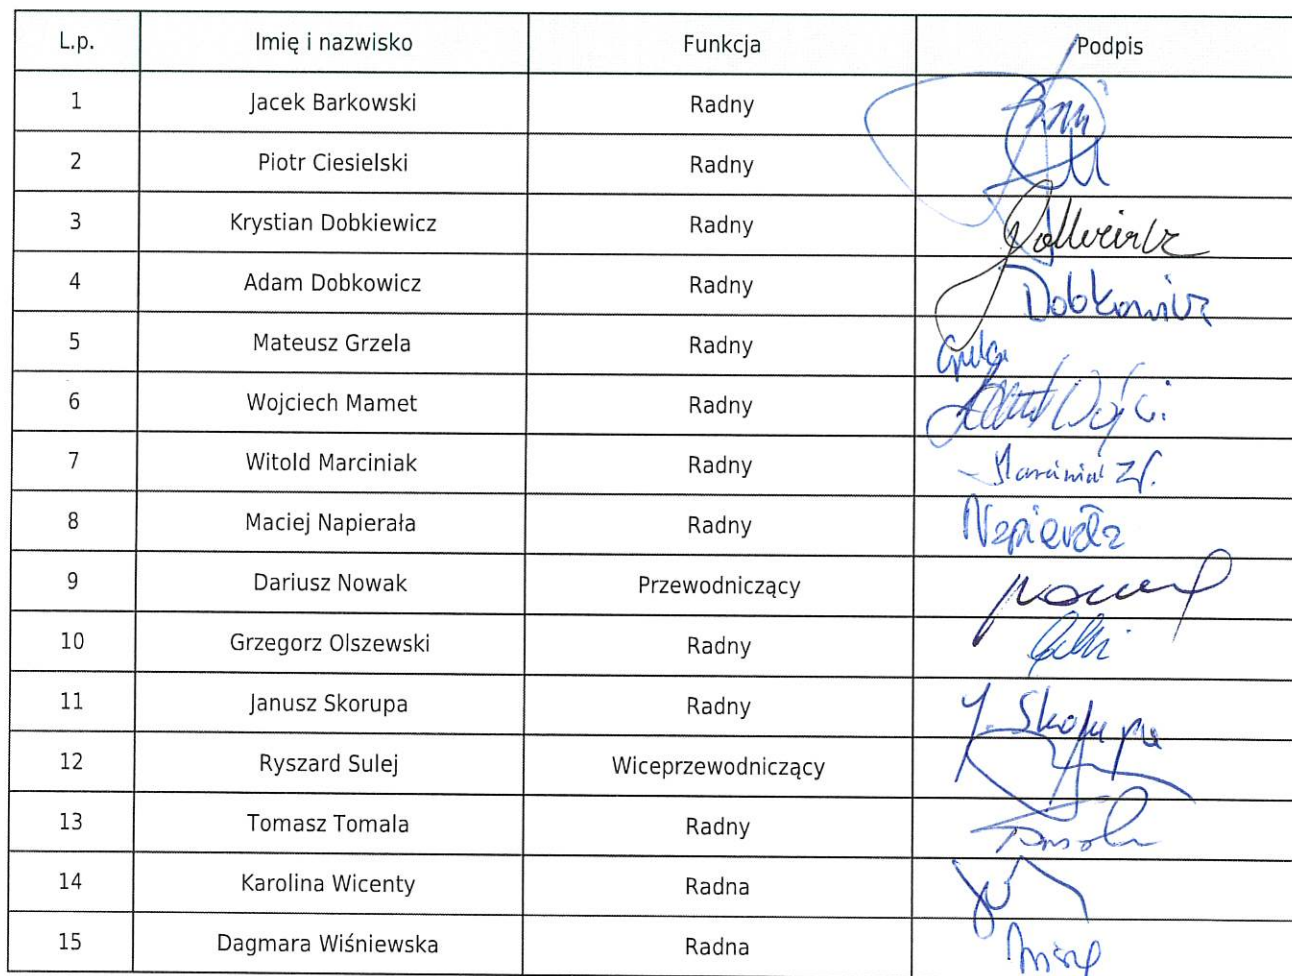 L.p. Imię i nazwisko Funkcja Podpis
1 Jacek Barkowski Radny
2 Piotr Ciesielski Radny
3 Krystian Dobkiewicz Radny
4 Adam Dobkowicz Radny Dobkowicz
5 Mateusz Grzela Radny
6 Wojciech Mamet Radny
7 Witold Marciniak Radny
8 Maciej Napierała Radny Napierała
9 Dariusz Nowak Przewodniczący
10 Grzegorz Olszewski Radny
11 Janusz Skorupa Radny J. Skorupa
12 Ryszard Sulej Wiceprzewodniczący
13 Tomasz Tomala Radny
14 Karolina Wicenty Radna
15 Dagmara Wiśniewska Radna